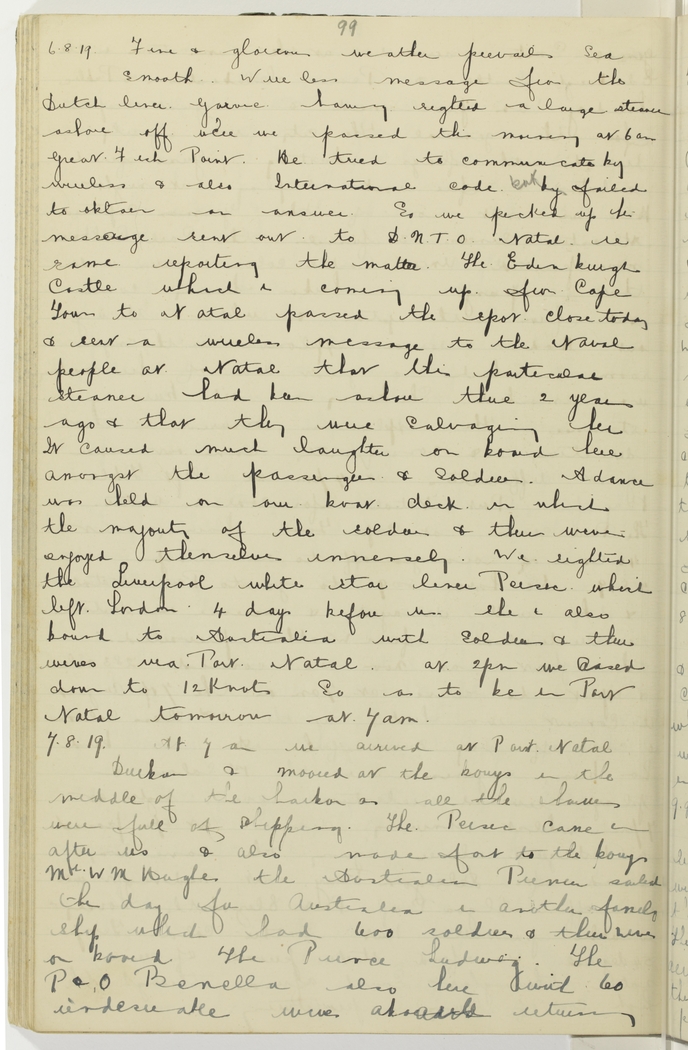 99
6.8.19. Fine & glorious weather prevails Sea
smooth. Wireless message from the
Dutch liner. having sighted a large steamer
ashore off we passed this morning at 6 am
Great Fish Point. He tried to communicate by
wireless & also International code. but failed
to obtain an answer. So we picked up his
message sent out. to D.N.T.O. Natal. re
same reporting the matter. The Edinburgh
Castle which is coming up. from Cape
Town to Natal passed the spot close today
& sent a wireless message to the Naval
people at Natal that this particular
steamer had been ashore there 2 years
ago & that they were salvaging her
It caused much laughter on board here
amongst the passengers & soldiers. A dance
was held on our boat deck. in which
the majority of the soldiers & their wives
enjoyed themselves immensely. We sighted
the Liverpool white star liner Persic. which
left. London. 4 days before us. she is also
bound to Australia with soldiers & their
wives via. Port. Natal. at 2pm we eased
down to 12 Knots So as to be in Port
Natal tomorrow at. 7 am.
7.8.19. At 7 am we arrived at Port. Natal
Durban & moored at the bouys in the
middle of the harbor as all the
were full of shipping. The. Persic came in
after us & also made fast to the bouys
Mr. W M Hughes the Australian Premier sailed
the day for Australia in another family
ship which had 600 soldiers & their wives
on board The Prince Ludwig. The
P & O Benella also here with 60
undesirable wives aboard returning